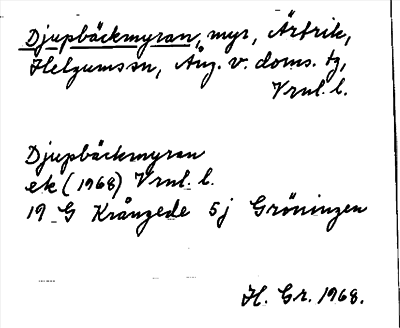 Djupbäckmyran, myr, Ärtrik,
Helgumssn, Ång. v. doms. tg,
Vrnl. l.
Djupbäckmyran
ek (1968) Vrnl. l.
19 G Krångede 5j Gröningen
H. Gr. 1968.